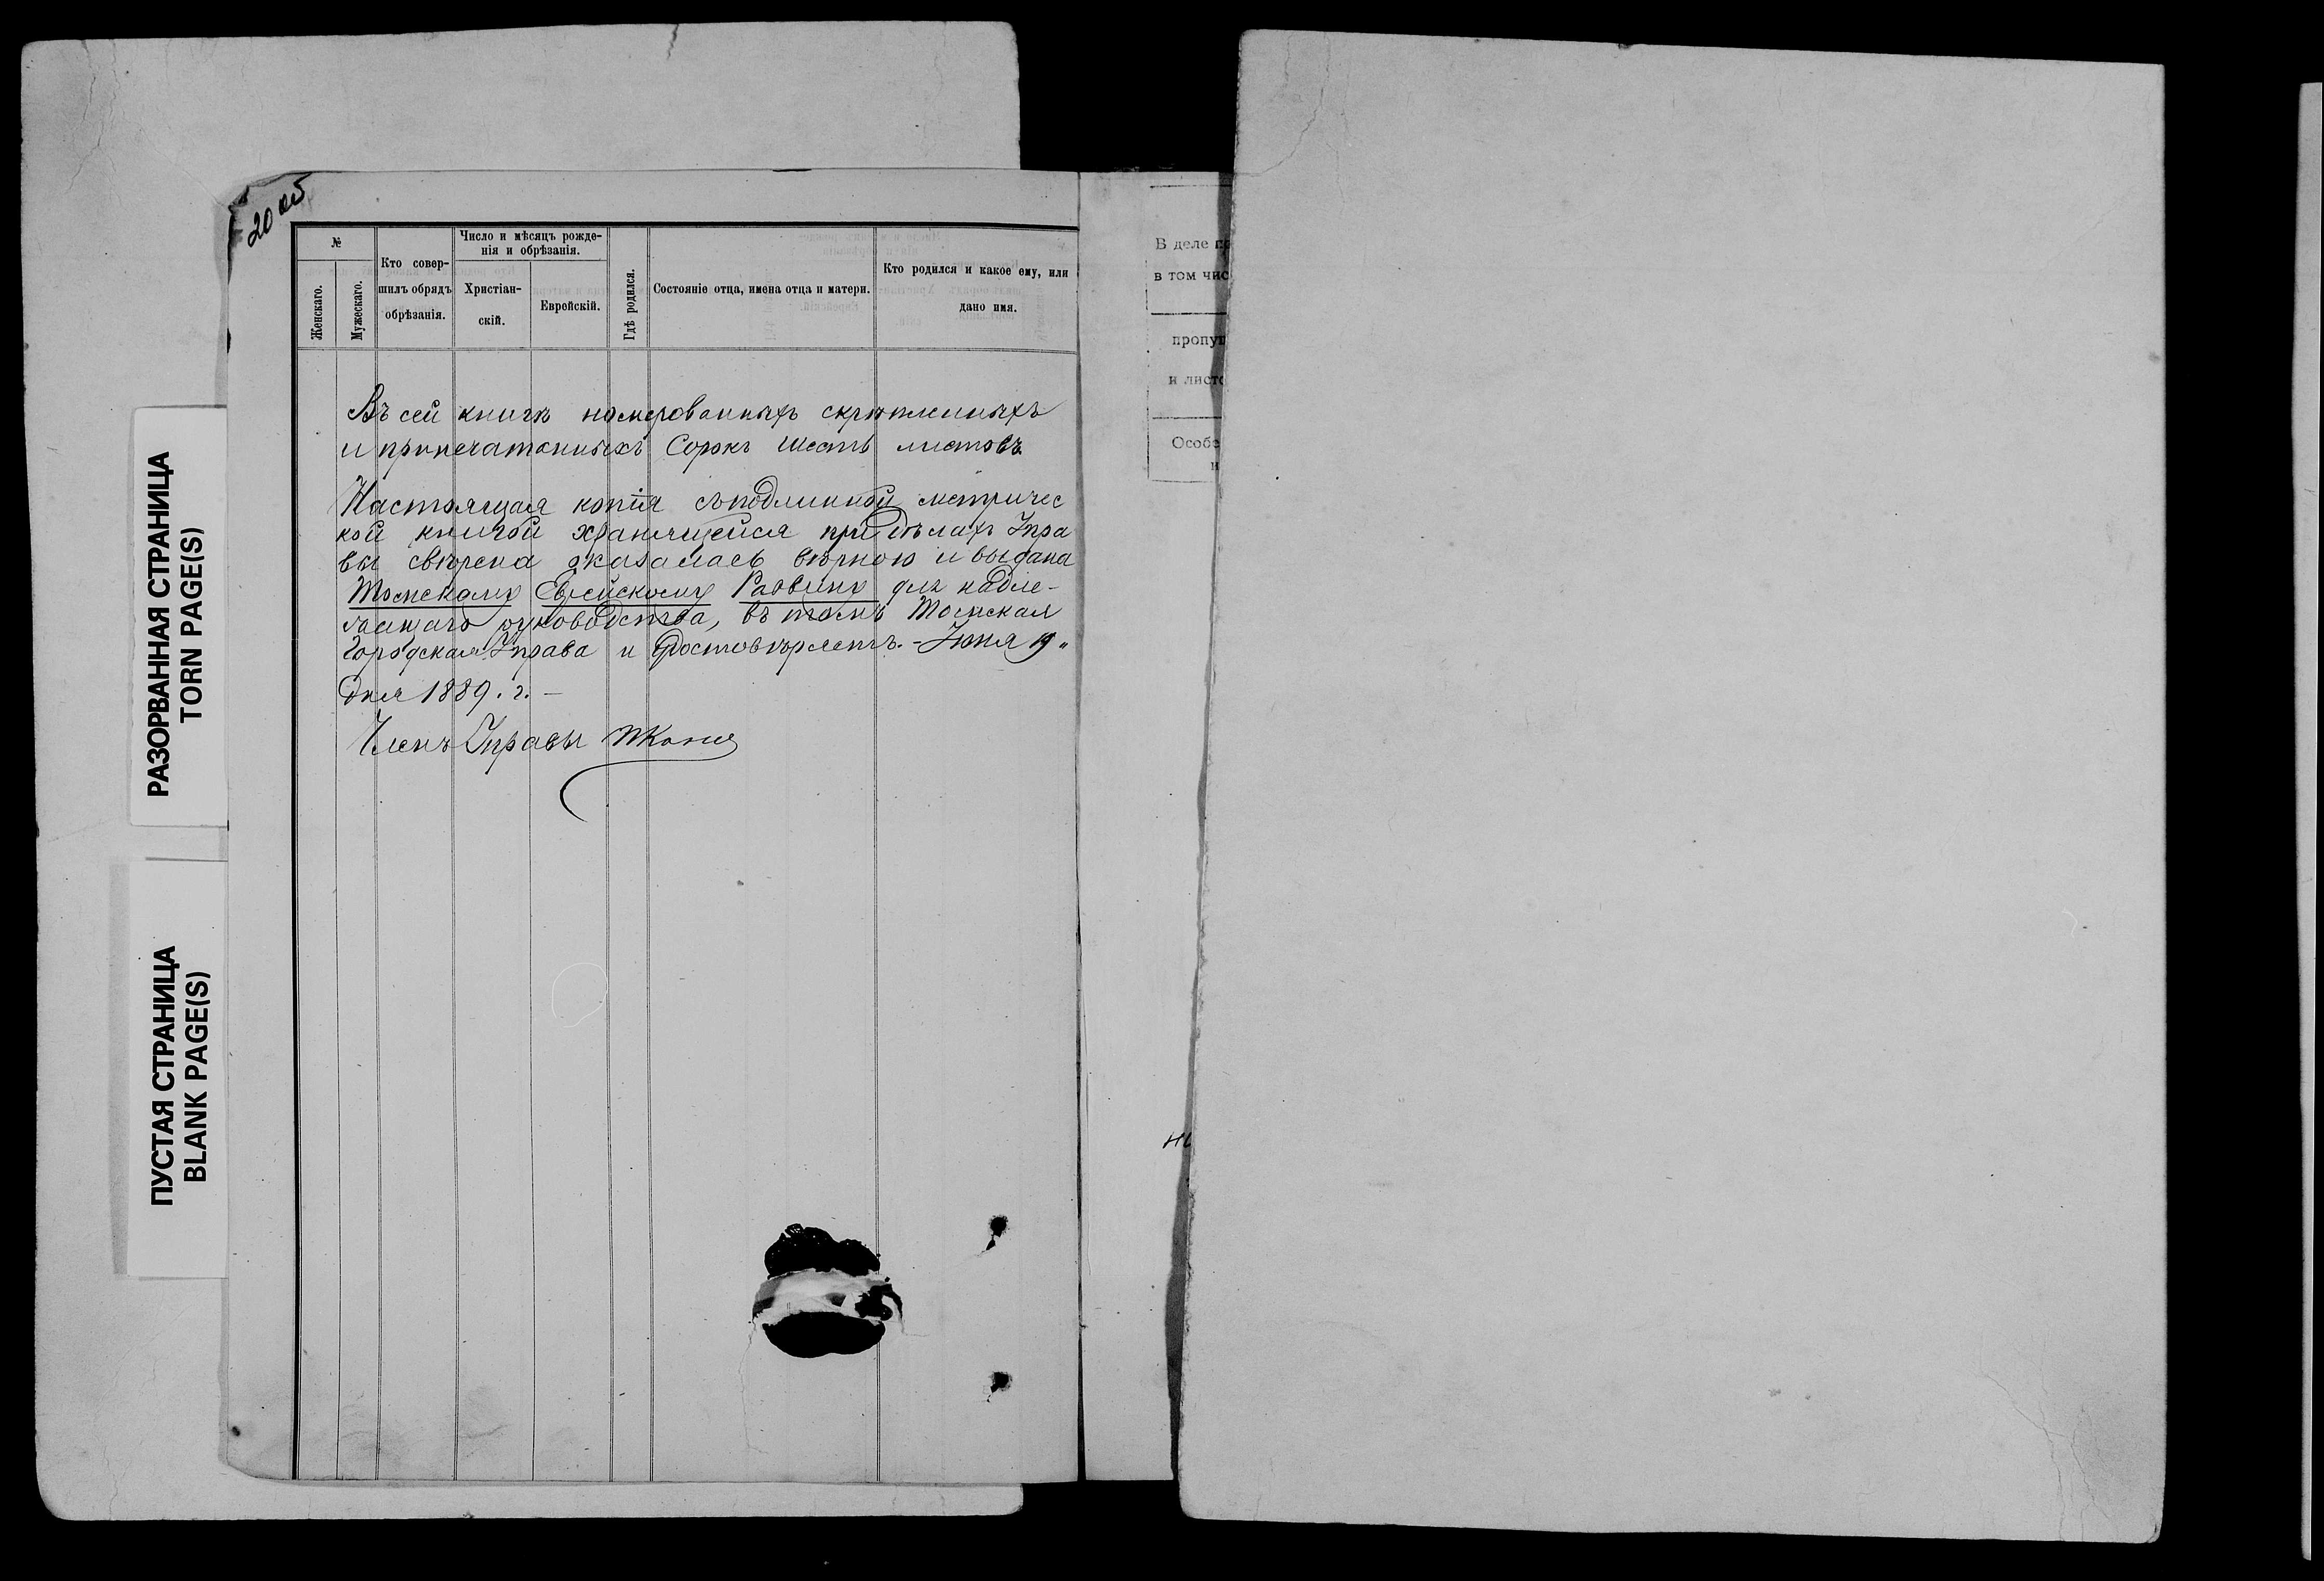 20 об
№
Женскаго.
Мужескаго.
Кто совер-
шилъ обрядъ
обрѣзанія.
Число и мѣсяцъ рожде-
нія и обрѣзанія.
Христіан-
скій.
Еврейскій.
Гдѣ родился.
Состояніе отца, имена отца и матери.
Кто родился и какое ему, или
дано имя.
Въ сей книгѣ номерованныхъ скрѣпленныхъ
и припечатанныхъ Сорокъ шесть листовъ.
Настоящая копія съ подлинной метричес
кой книгой хранящейся при дѣлахъ Упра
вы свѣрена оказалась вѣрною и выдана
Томскому Еврейскому Раввину для надле-
жащаго руководства, въ томъ Томская
Городская Управа и удостовѣряетъ. - Іюня 19 "
дня 1889. г. -
Членъ Управы
РАЗОРВАННАЯ СТРАНИЦА
TORN PAGE(S)
ПУСТАЯ СТРАНИЦА
BLANK PAGE(S)
В деле
в том чис
пропу
и листо
Особе
н